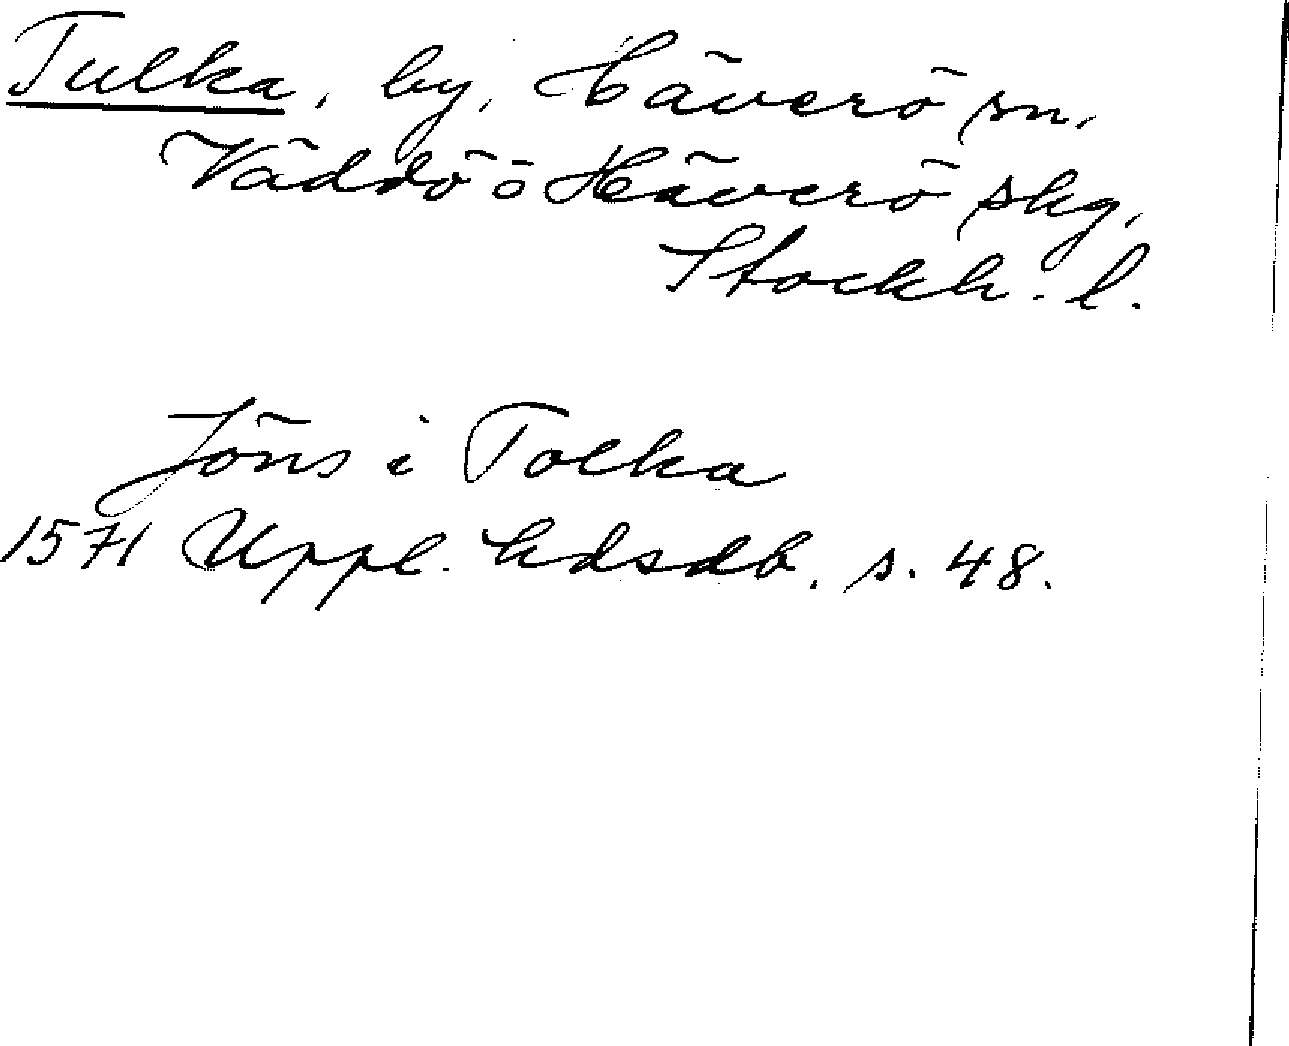 Tulka, by, Häverö sn,
Väddö o Häverö skg,
Stockh. l.
Jöns i Tolka
1571 Uppl. hdsdb. s. 48.